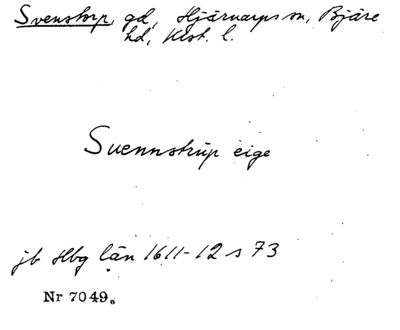 Svenstorp, gd, Hjärnarps sn, Bjäre
hd, Klst. l.
Suennstrup eige
jb Hbg län 1611-12 s 73
Nr 7049.